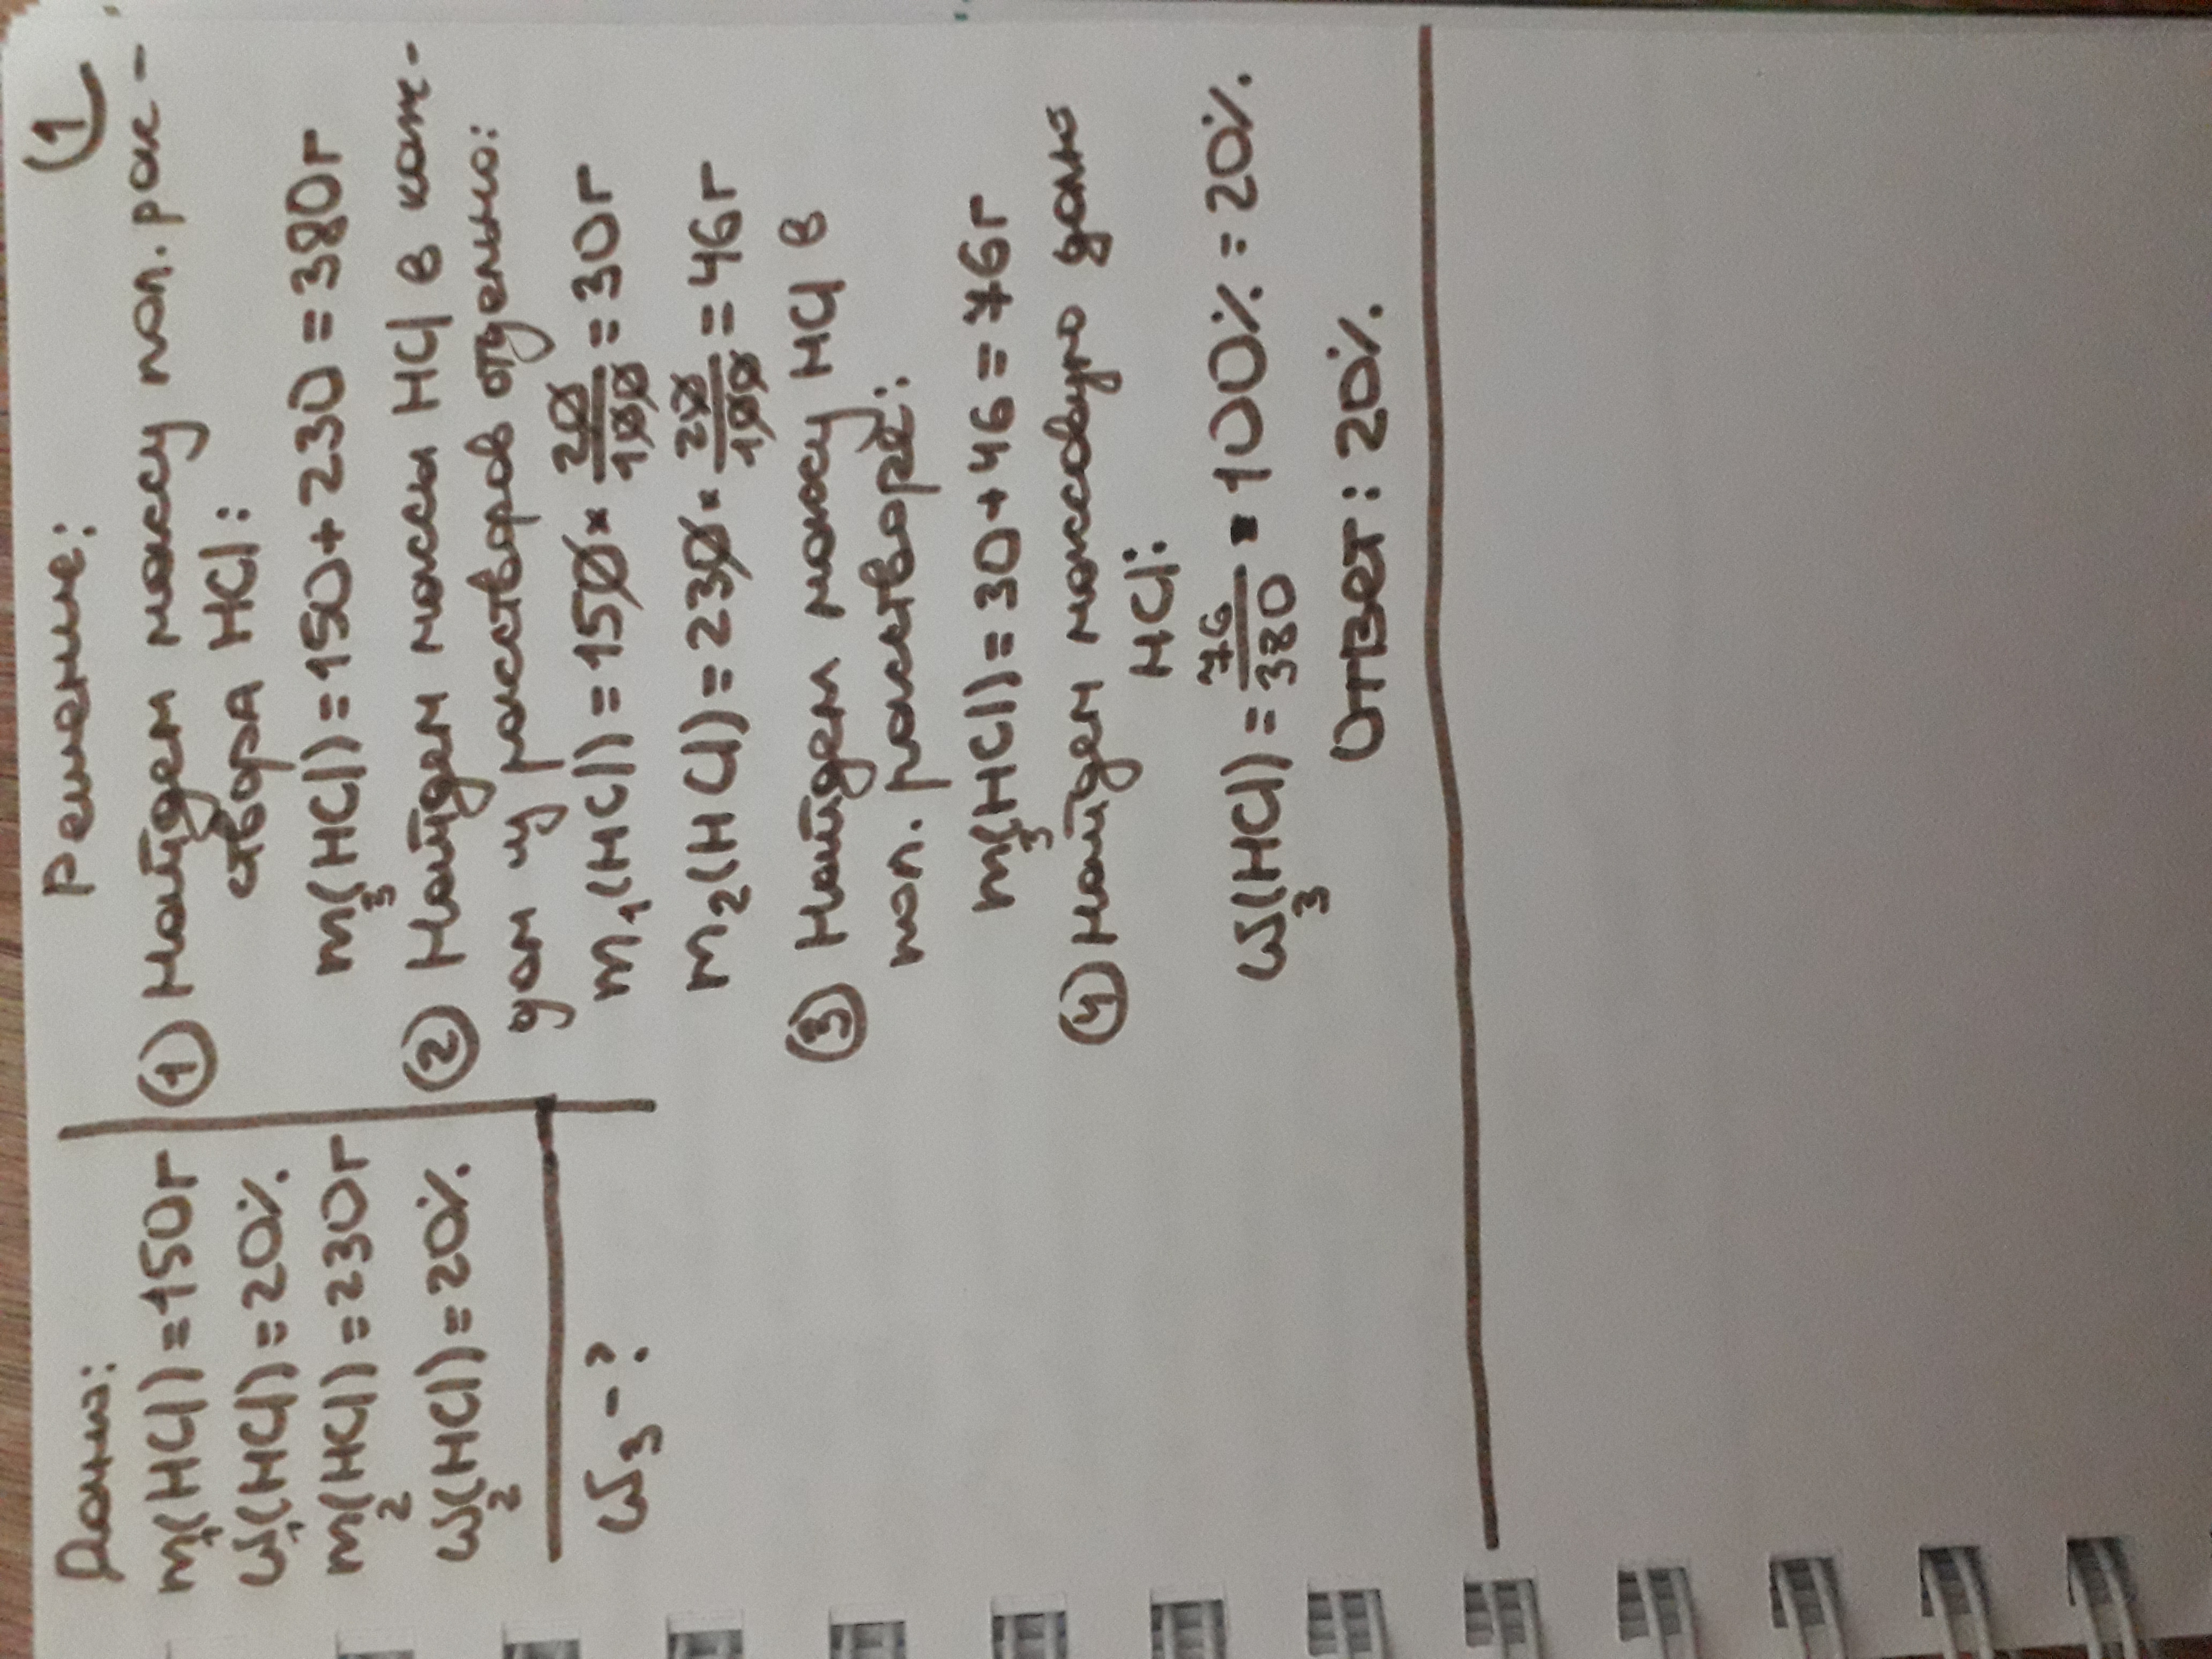 1
Дано:
m₁(HCl)=150г
ω₁(HCl)=20%
m₂(HCl)=230г
ω₂(HCl)=20%
ω₃-?
Решение:
① Найдем массу пол. рас-
твора HCl:
m₃(HCl)=150+230=380г
② Найдем массы HCl в каж-
дом из растворов отдельно:
m₁(HCl)=150·20/100=30г
m₂(HCl)=230·20/100=46г
③ Найдем массу HCl в
пол. растворе:
m₃(HCl)=30+46=76г
④ Найдем массовую долю
HCl:
ω₃(HCl)=76/380·100%=20%.
Ответ: 20%.